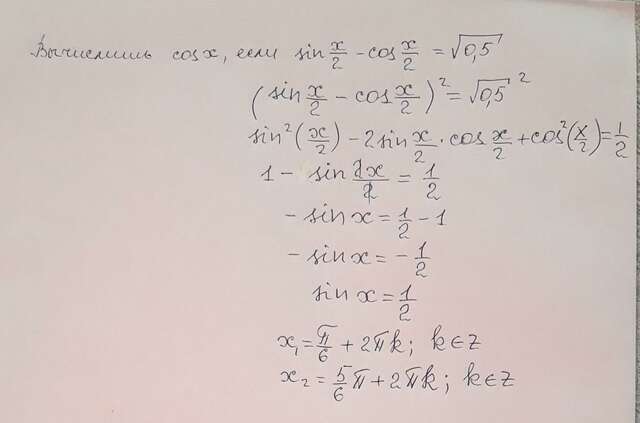 Вычислить cos x, если sin x/2 - cos x/2 = √0,5
(sin x/2 - cos x/2)² = √0,5²
sin²(x/2) - 2sin x/2 · cos x/2 + cos²(x/2) = 1/2
1 - sin 2x/2 = 1/2
- sin x = 1/2 - 1
- sin x = - 1/2
sin x = 1/2
x₁ = π/6 + 2πk; k∈z
x₂ = 5/6 π + 2πk; k∈z